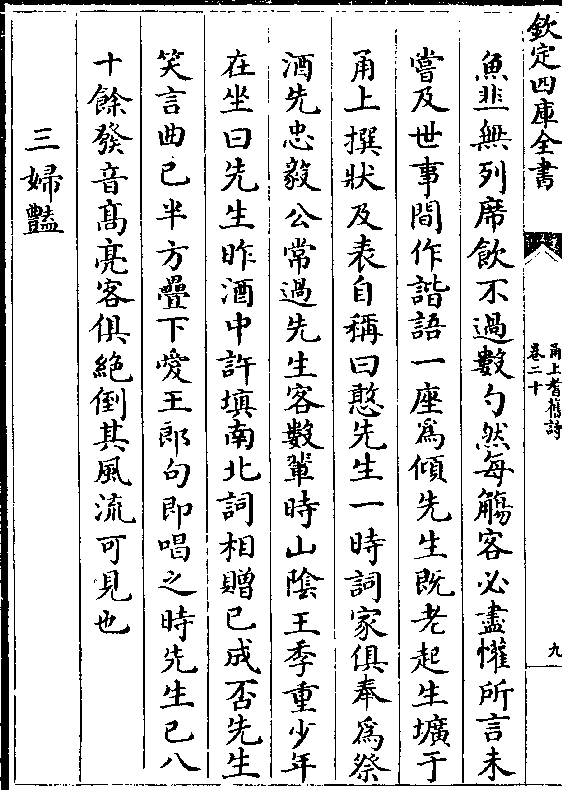 欽定四庫全書
甬上耆舊詩
卷二十
九
魚韭無列席飲不過數勺然每觴客必盡懽所言未
嘗及世事間作諧語一座為傾先生既老起生壙于
甬上撰狀及表自稱曰憨先生一時詞家俱奉為祭
酒先忠毅公常過先生客數輩時山陰王季重少年
在坐曰先生昨酒中許填南北詞相贈已成否先生
笑言曲已半方疊下愛王郎句即唱之時先生已八
十餘發音髙亮客俱絶倒其風流可見也
三婦豔